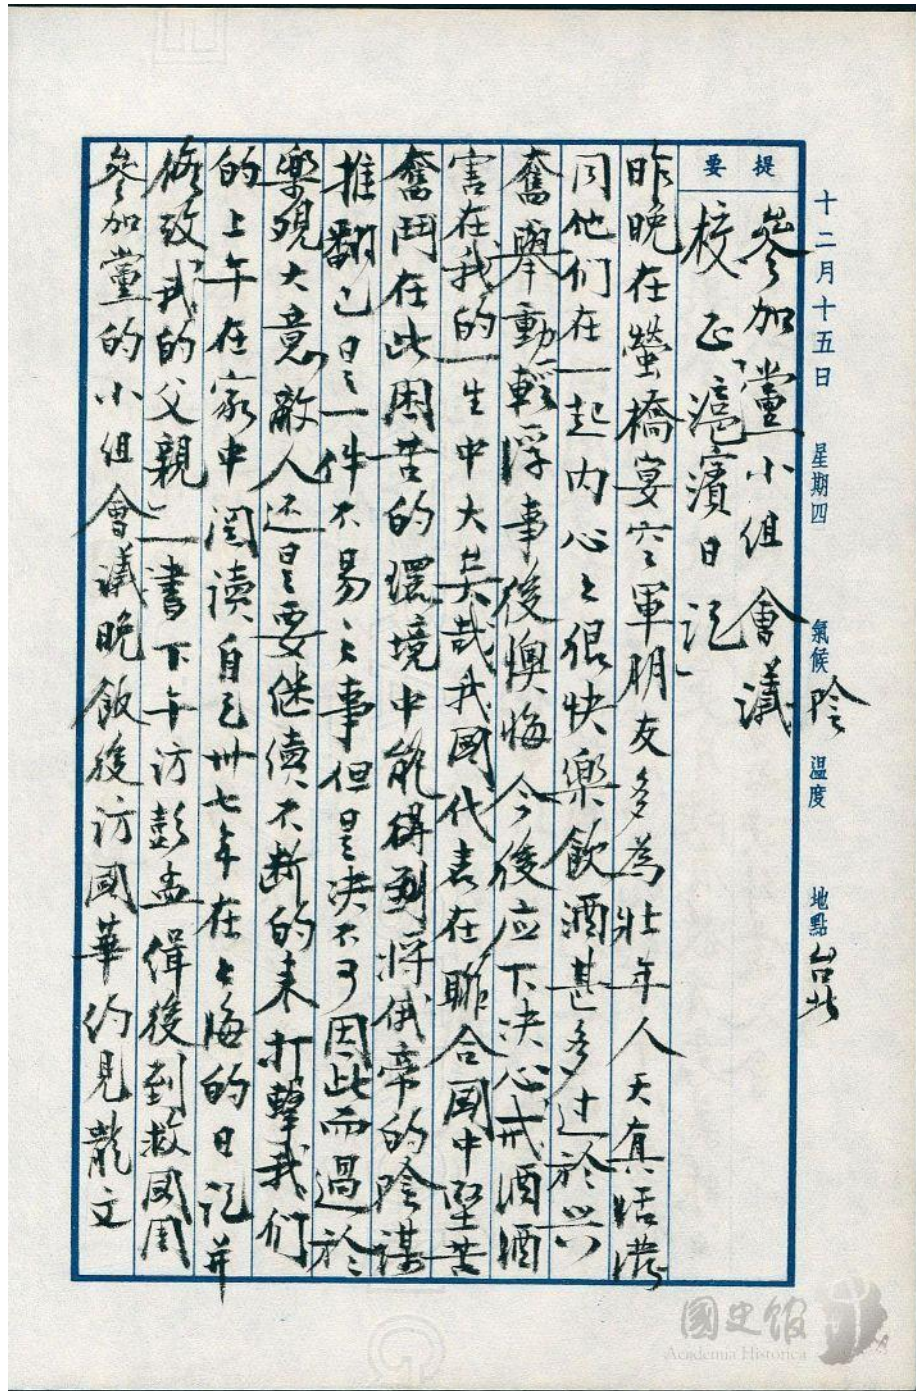 十二月十五日 星期四 氣候 陰 溫度 地點 台北
提要
參加黨小組會議
校正「滬濱日記」
昨晚在螢橋宴空軍朋友多為壯年人天真活潑
同他們在一起內心上很快樂飲酒甚多过於兴
奮舉動輕浮事後懊悔今後应下決心戒酒酒
害在我的一生中大矣哉我國代表在聯合國中堅苦
奮鬥在此困苦的環境中能得到將俄帝的陰謀
推翻已是一件不易之事但是決不可因此而過於
樂观大意敵人还是要继續不断的来打擊我们
的上午在家中閱读自己卅七年在上海的日记并
修改「我的父親」一書下午访彭孟緝後到救國團
參加黨的小组會議晚飯後访國華约見龍文
國史館
Academia Historica